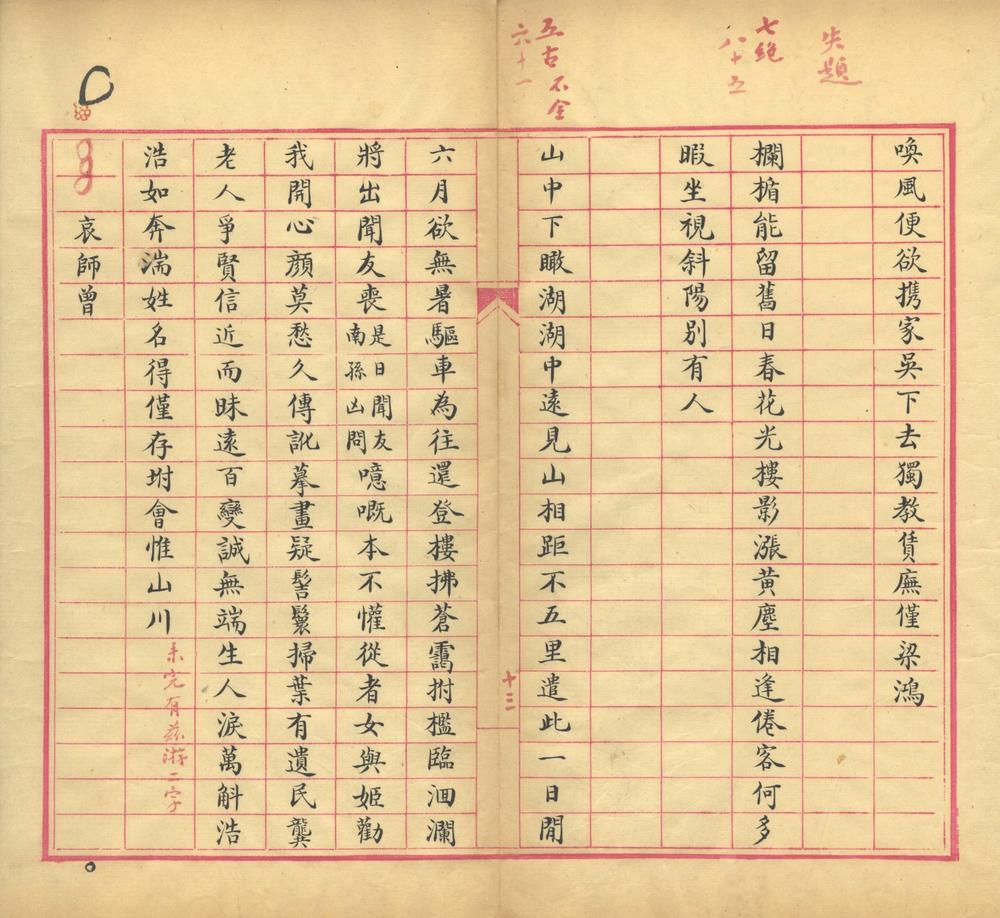 喚風便欲携家吳下去獨教賃廡僅梁鴻
失題
七絕
八十五
欄楯能留舊日春花光樓影漲黃塵相逢倦客何多
暇坐視斜陽别有人
五古不全
六十一
山中下瞰湖湖中遠見山相距不五里遣此一日閒
十三
六月欲無暑驅車為往還登樓拂蒼靄拊檻臨洄瀾
將出聞友喪是日聞友南孫凶問噫嘅本不懽從者女與姬勸
我開心顏莫愁久傳訛摹畫疑髻鬟掃葉有遺民龔
老人爭賢信近而昧遠百變誠無端生人淚萬斛浩
浩如奔湍姓名得僅存坿會惟山川
未完有茲游二字
哀師曾